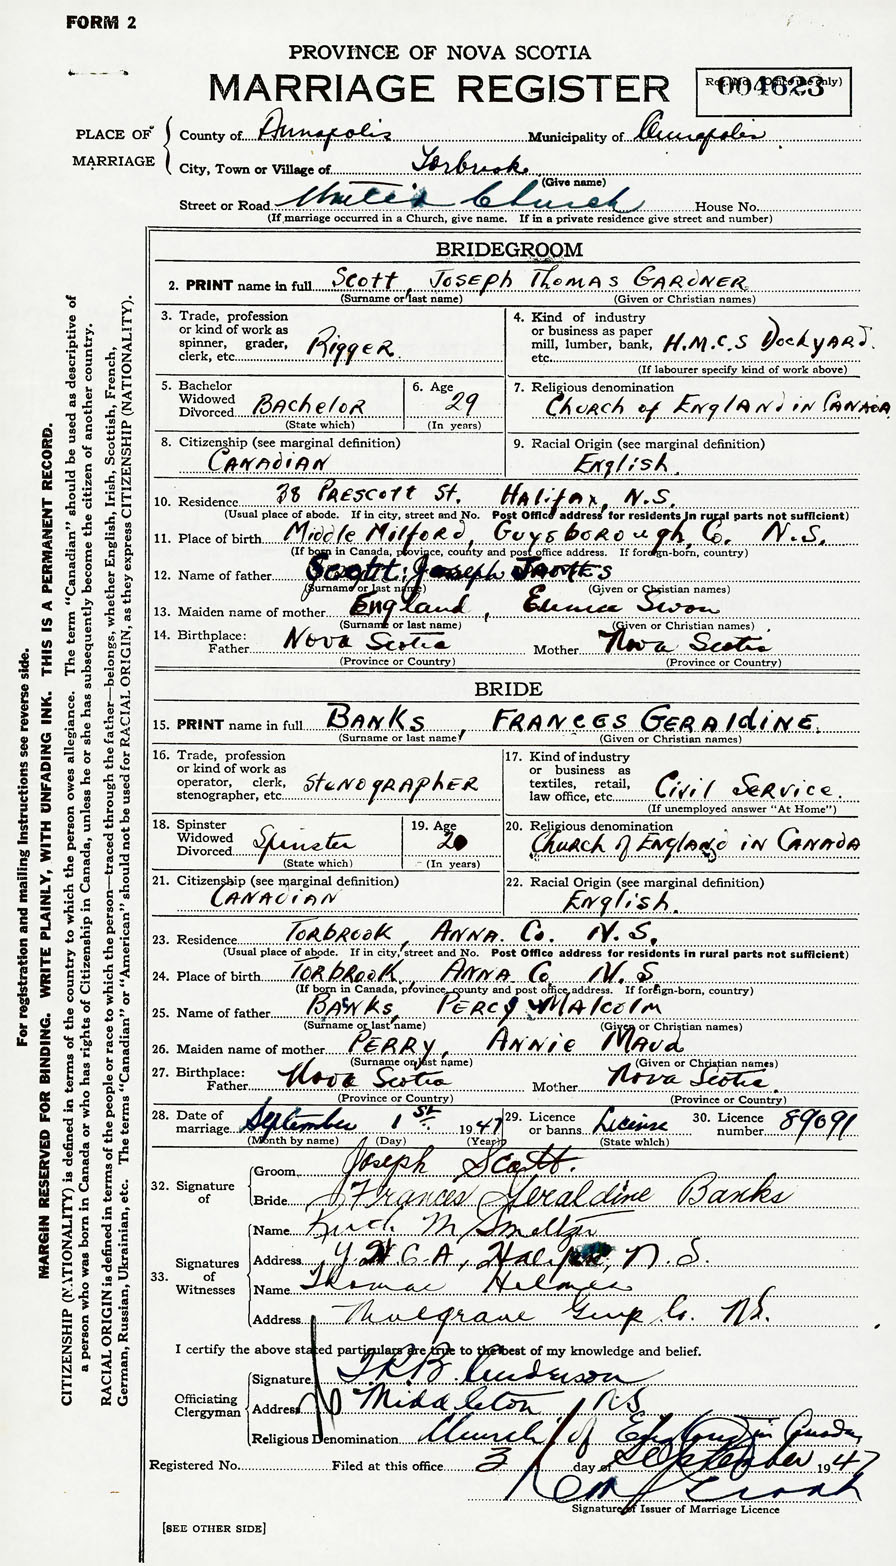 FORM 2
PROVINCE OF NOVA SCOTIA
MARRIAGE REGISTER
Reg. No. (Office use only)
004623
PLACE OF MARRIAGE
County of Annapolis Municipality of Annapolis
City, Town or Village of Torbrook
(Give name)
Street or Road United Church House No.
(If marriage occurred in a Church, give name. If in a private residence give street and number)
BRIDEGROOM
2. PRINT name in full SCOTT, JOSEPH THOMAS GARDNER
(Surname or last name) (Given or Christian names)
3. Trade, profession or kind of work as spinner, grader, clerk, etc. RIGGER
4. Kind of industry or business as paper mill, lumber, bank, etc. H.M.C.S DockYARD.
(If labourer specify kind of work above)
5. Bachelor Widowed Divorced BACHELOR
(State which)
6. Age 29
(In years)
7. Religious denomination
CHURCH OF ENGLAND IN CANADA
8. Citizenship (see marginal definition)
CANADIAN
9. Racial Origin (see marginal definition)
ENGLISH.
10. Residence 38 PRESCOTT ST. HALIFAX, N.S.
(Usual place of abode. If in city, street and No. Post Office address for residents in rural parts not sufficient)
11. Place of birth MIDDLE MILFORD, GUYSBOROUGH, CO. N.S.
(If born in Canada, province, county and post office address. If foreign-born, country)
12. Name of father Scott, Joseph JAMES
(Surname or last name) (Given or Christian names)
13. Maiden name of mother England, Eunice Swon
(Surname or last name) (Given or Christian names)
14. Birthplace:
Father Nova Scotia Mother Nova Scotia
(Province or Country) (Province or Country)
BRIDE
15. PRINT name in full BANKS, FRANCES GERALDINE.
(Surname or last name) (Given or Christian names)
16. Trade, profession or kind of work as operator, clerk, stenographer, etc. STENOGRAPHER
17. Kind of industry or business as textiles, retail, law office, etc. CIVIL SERVICE.
(If unemployed answer "At Home")
18. Spinster Widowed Divorced Spinster
(State which)
19. Age 20
(In years)
20. Religious denomination
CHURCH OF ENGLAND IN CANADA
21. Citizenship (see marginal definition)
CANADIAN
22. Racial Origin (see marginal definition)
ENGLISH.
23. Residence TORBROOK, ANNA. CO. N.S.
(Usual place of abode. If in city, street and No. Post Office address for residents in rural parts not sufficient)
24. Place of birth TORBROOK, ANNA CO N.S.
(If born in Canada, province, county and post office address. If foreign-born, country)
25. Name of father BANKS, PERCY MALCOLM
(Surname or last name) (Given or Christian names)
26. Maiden name of mother PERRY, ANNIE MAUD
(Surname or last name) (Given or Christian names)
27. Birthplace:
Father Nova Scotia Mother Nova Scotia.
(Province or Country) (Province or Country)
28. Date of marriage September 1st 1947
(Month by name) (Day) (Year)
29. Licence or banns License
(State which)
30. Licence number 89091
32. Signature of
Groom Joseph Scott.
Bride Frances Geraldine Banks
33. Signatures of Witnesses
Name M Smeltzer
Address Y.W.C.A, Halifax, N.S.
Name Thomas
Address Mulgrave Guys. Co. NS.
I certify the above stated particulars are true to the best of my knowledge and belief.
Officiating Clergyman
Signature Anderson
Address Middleton NS
Religious Denomination Church of England in Canada
Registered No. Filed at this office 3 day of September 1947
Signature of Issuer of Marriage Licence
[SEE OTHER SIDE]
For registration and mailing instructions see reverse side.
MARGIN RESERVED FOR BINDING. WRITE PLAINLY, WITH UNFADING INK. THIS IS A PERMANENT RECORD.
CITIZENSHIP (NATIONALITY) is defined in terms of the country to which the person owes allegiance. The term "Canadian" should be used as descriptive of
a person who was born in Canada or who has rights of Citizenship in Canada, unless he or she has subsequently become the citizen of another country.
RACIAL ORIGIN is defined in terms of the people or race to which the person—traced through the father—belongs, whether English, Irish, Scottish, French,
German, Russian, Ukrainian, etc. The terms "Canadian" or "American" should not be used for RACIAL ORIGIN, as they express CITIZENSHIP (NATIONALITY).